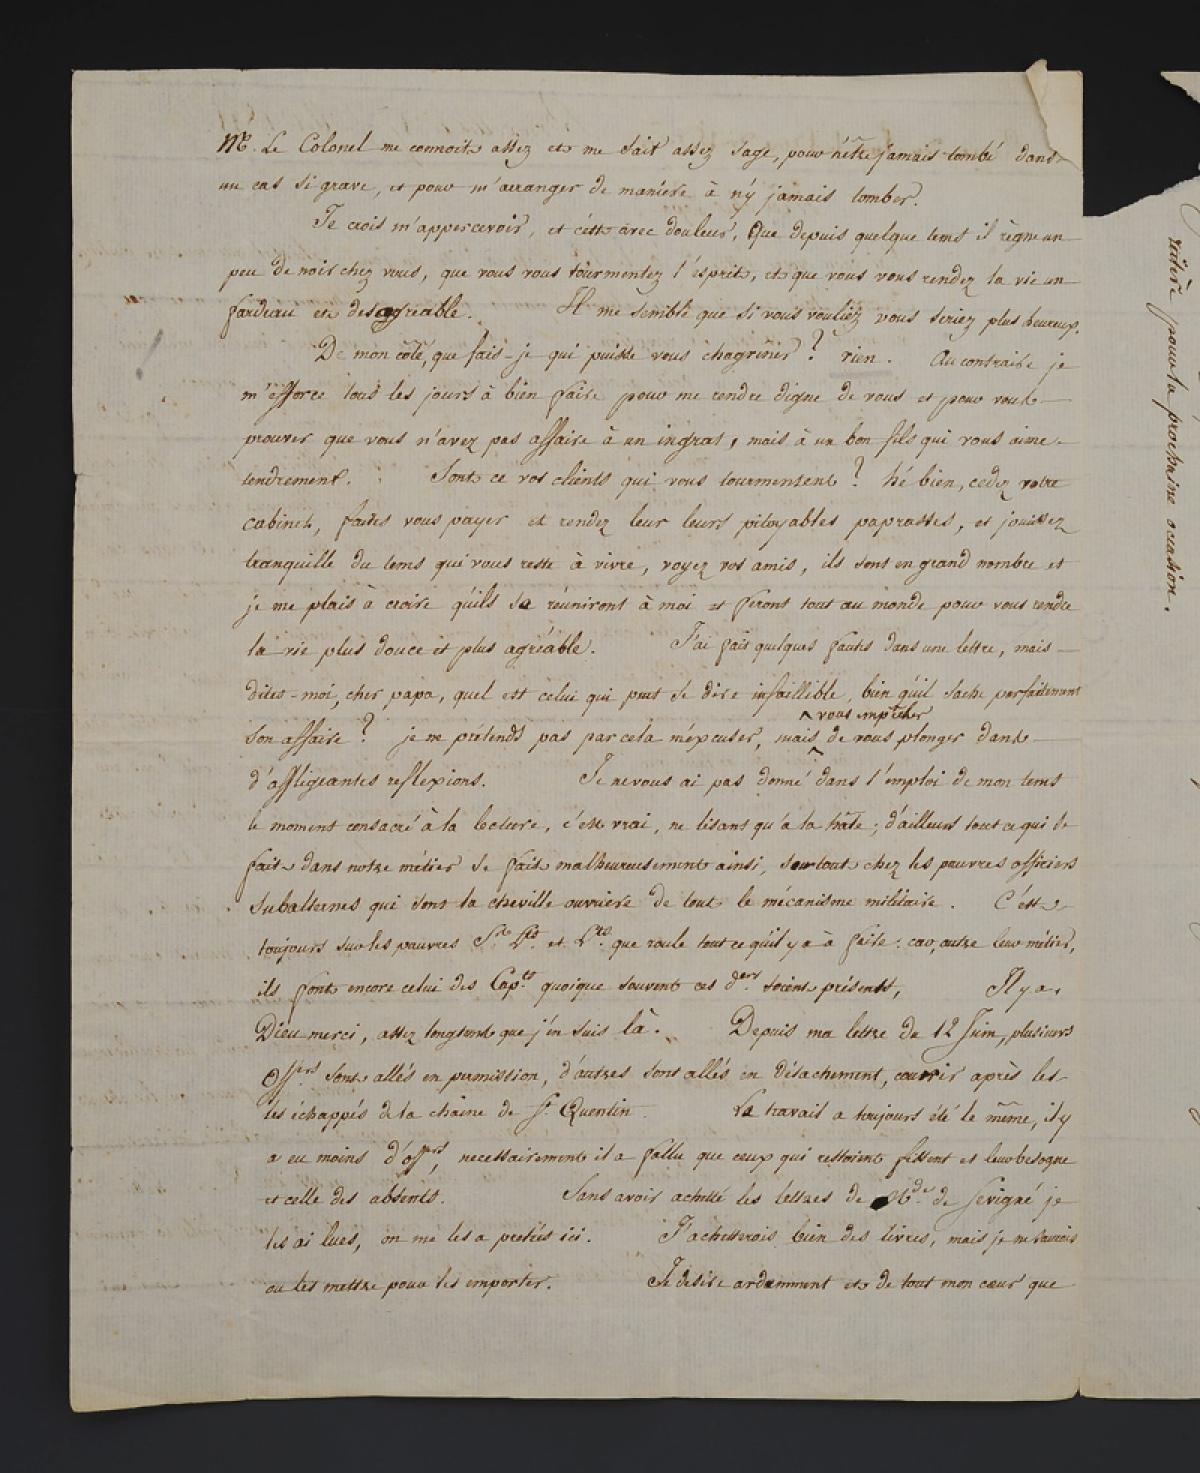 Mr. Le Colonel me connoit assez et me sait assez sage, pour n'être jamais tombé dans
un cas si grave, et pour m'arranger de manière à n'y jamais tomber.
Je crois m'appercevoir, et c'est avec douleur, que depuis quelque tems il règne un
peu de noir chez vous, que vous vous tourmentez l'esprit, et que vous vous rendez la vie un
fardeau et desagréable. Il me semble que si vous vouliez vous seriez plus heureux.
De mon côté, que fais-je qui puisse vous chagriner? rien. Au contraire je
m'efforce tous les jours à bien faire pour me rendre digne de vous et pour vous
prouver que vous n'avez pas affaire à un ingrat, mais à un bon fils qui vous aime
tendrement. Sont ce vos clients qui vous tourmentent? hé bien, cedez votre
cabinet, faites vous payer et rendez leur leurs pitoyables paprasses, et jouissez
tranquille du tems qui vous reste à vivre, voyez vos amis, ils sont en grand nombre et
je me plais à croire qu'ils se réuniront à moi et feront tout au monde pour vous rendre
la vie plus douce et plus agréable. J'ai fait quelques fautes dans une lettre, mais
dites-moi, cher papa, quel est celui qui peut se dire infaillible, bien qu'il sache parfaitement
^ vous empêcher
son affaire? je ne prétends pas par cela m'excuser, mais ^ de vous plonger dans
d'affligeantes reflexions. Je ne vous ai pas donné dans l'emploi de mon tems
le moment consacré à la lecture, c'est vrai, ne lisant qu'a la hâte; d'ailleurs tout ce qui se
fait dans notre métier se fait malheureusement ainsi, surtout chez les pauvres officiers
subalternes qui sont la cheville ouvrière de tout le mécanisme militaire. C'est
toujours sur les pauvres Ss Lts et Lts que roule tout ce qu'il y a à faire: car, outre leur métier,
ils font encore celui des Capes quoique souvent ces ders soient présents, Il y a,
Dieu merci, assez longtems que j'en suis là. Depuis ma lettre du 12 Juin, plusieurs
offrs sont allés en permission, d'autres sont allés en détachement, courir après les
les échappés de la chaine de St Quentin. Le travail a toujours été le même, il y
a eu moins d'offrs, necessairement il a fallu que ceux qui restoient fissent et leur besogne
et celle des absents. Sans avoir achetté les lettres de Mde de Sevigné je
les ai lues, on me les a pretés ici. J'achetterois bien des livres, mais je ne saurois
ou les mettre pour les emporter. Je desire ardemment et de tout mon cœur que
réitère pour la prochaine occasion.